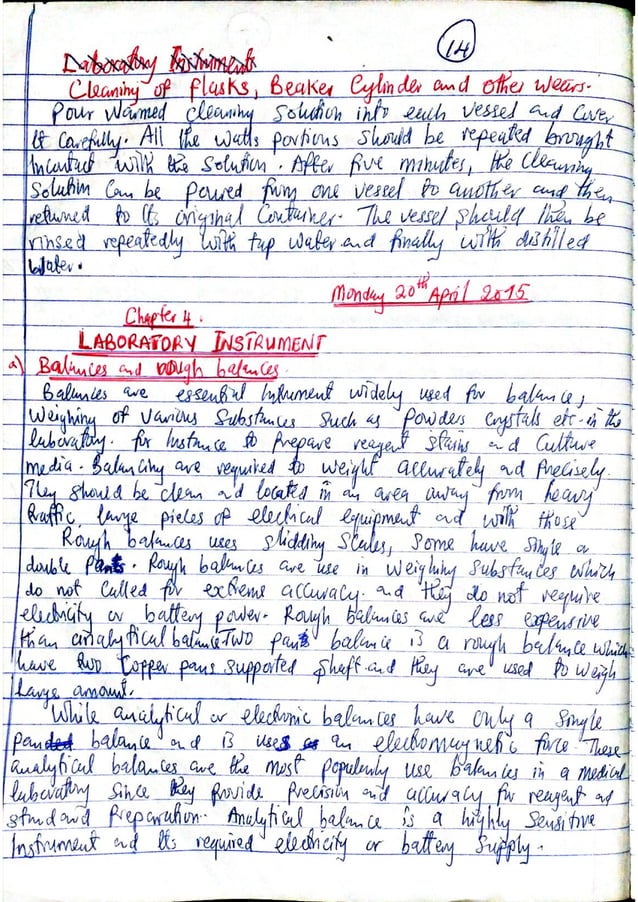 14
Laboratory Instrument
Cleaning of flasks, Beaker Cylinder and other wears.
Pour warmed cleaning solution into each vessel and cover
it carefully. All the walls portions should be repeated brought
incontact with the solution. After five minutes, the cleaning
solution can be poured from one vessel to another and then
returned to its original container. The vessel should then be
rinsed repeatedly with tap water and finally with distilled
water.
Monday 20th April 2015
Chapter 4.
LABORATORY INSTRUMENT
a) Balances and rough balances.
Balances are essential instrument widely used for balance,
weighing of various substances such as powders crystals etc. in the
laboratory. for instance to prepare reagent stains and culture
media. Balancing are required to weight accurately and precisely.
They should be clean and located in an area away from heavy
traffic, large pieces of electical equipment and with those
Rough balances uses slidding scales, some have single or
double pans. Rough balances are use in weighing substances which
do not called for extreme accuracy. and they do not require
electricity or battery power. Rough balances are less expensive
than analytical balance Two pans balance is a rough balance which
have two copper pans supported shaft and they are used to weigh
large amount.
While analytical or electronic balances have only a single
panded balance and is uses as an electromagnetic force. These
analytical balances are the most popularly use balances in a medical
laboratory since they provide precision and accuracy for reagent and
standard preparation. Analytical balance is a highly sensitive
instrument and its required electricity or battery supply.